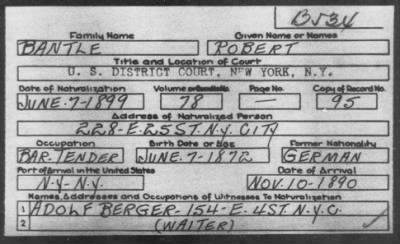 B534
Family Name Given Name or Names
BANTLE ROBERT
Title and Location of Court
U. S. DISTRICT COURT, NEW YORK, N.Y.
Date of Naturalization Volume or Bundle No. Page No. Copy of Record No.
JUNE-7-1899 78 — 95
Address of Naturalized Person
228-E-25 ST. N.Y. CITY
Occupation Birth Date or Age Former Nationality
BAR-TENDER JUNE-7-1872 GERMAN
Port of Arrival in the United States Date of Arrival
N-Y-N.Y. NOV-10-1890
Names, Addresses and Occupations of Witnesses To Naturalization
1 ADOLF BERGER-154-E-4 ST. N.Y.C.
2 (WAITER)